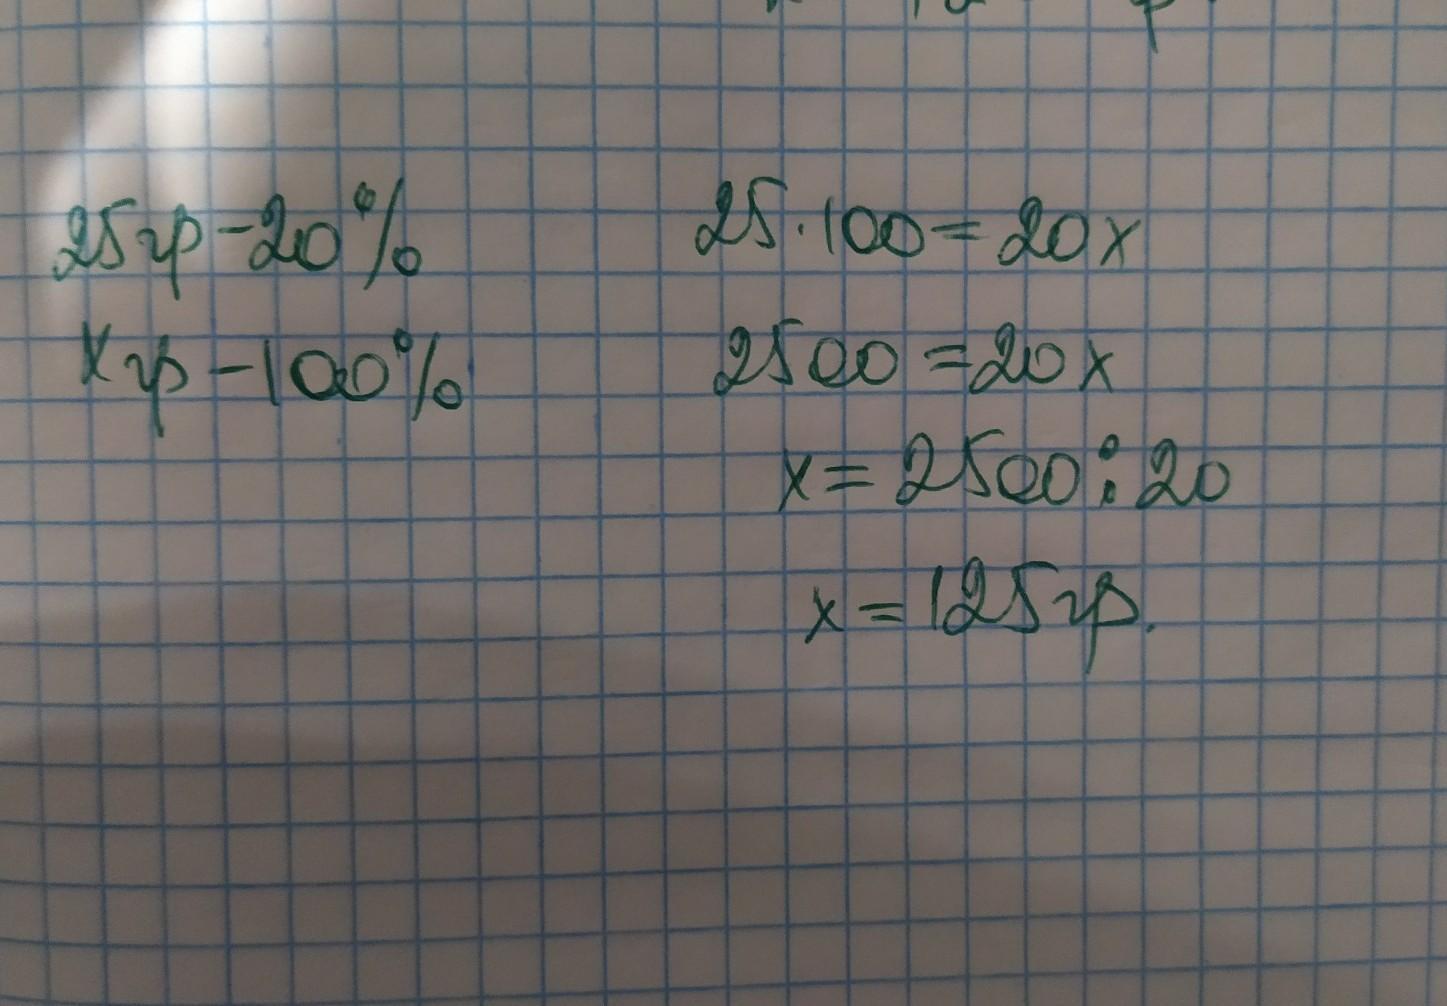 25гр-20%
xгр-100%
25·100=20x
2500=20x
x=2500:20
x=125гр.